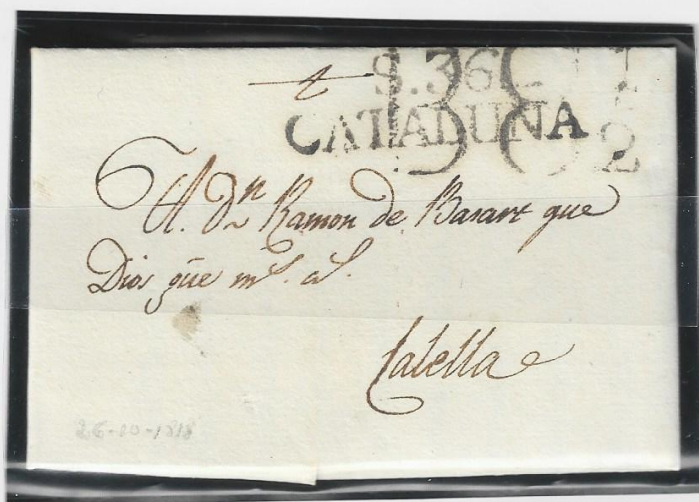 S.36
CATALUÑA
1/2
A. Dn Ramon de Basart que
Dios gũe ms. as.
Calella
26-10-1818